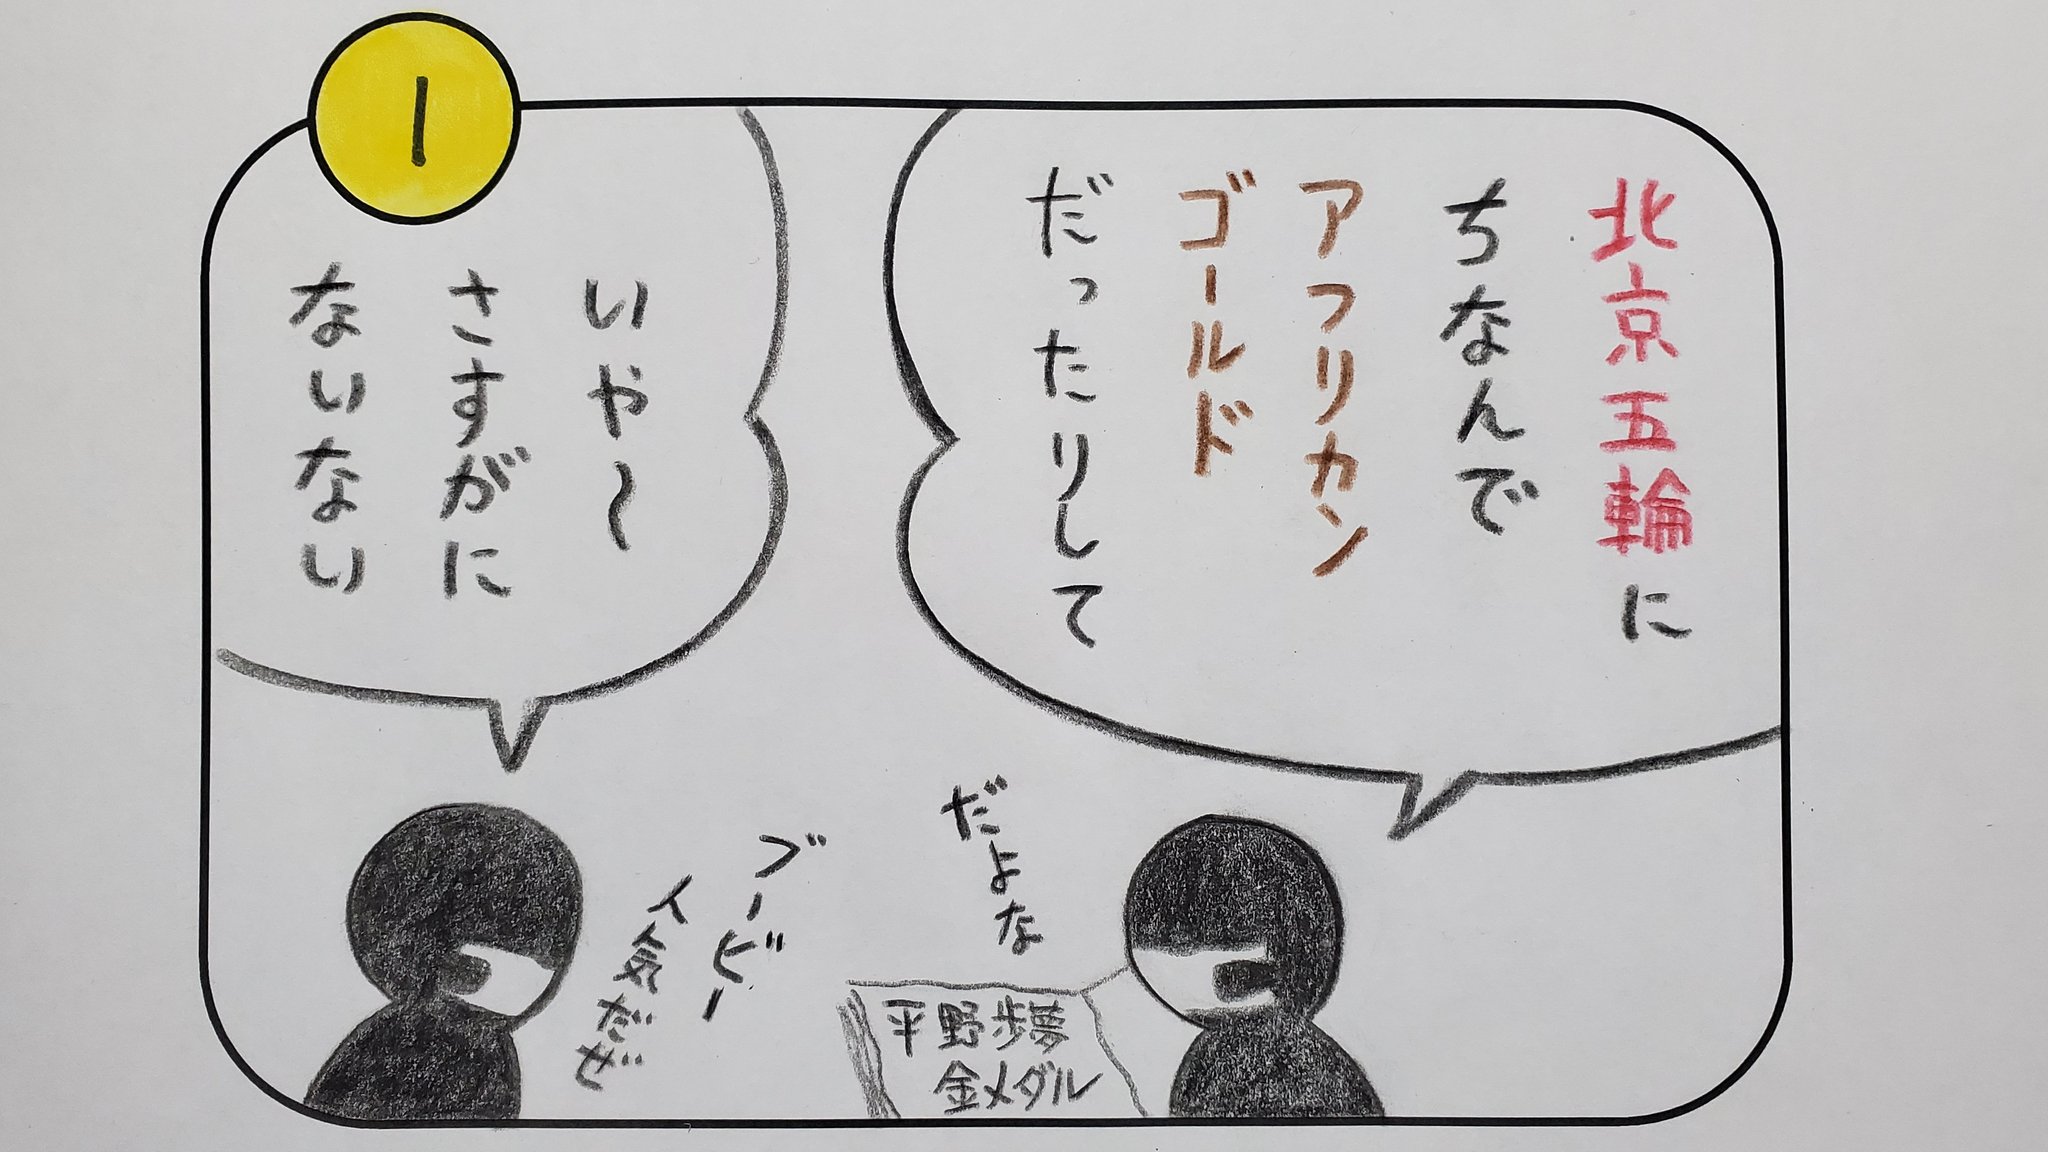 1
北京五輪に
ちなんで
アフリカン
ゴールド
だったりして
いや～
さすがに
ないない
だよな
ブービー
人気だぜ
平野歩夢
金メダル